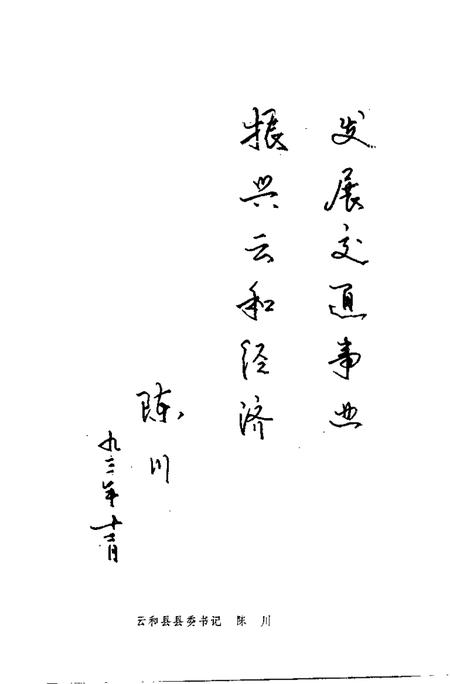 发展交通事业
振兴云和经济
陈川
九三年十二月
云和县县委书记 陈川